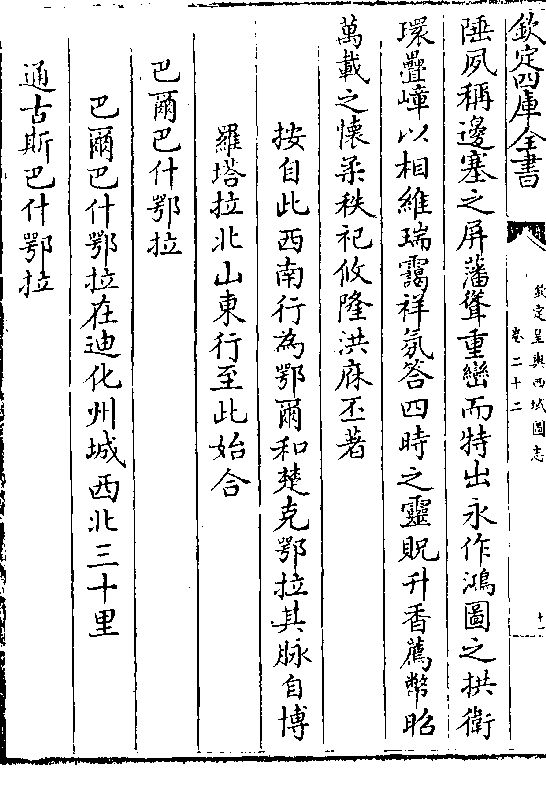 欽定四庫全書
欽定皇輿西域圖志
卷二十二
十一
陲夙稱邊塞之屏藩聳重巒而特出永作鴻圖之拱衛
環疊嶂以相維瑞靄祥氛答四時之靈貺升香薦幣昭
萬載之懷柔秩祀攸隆洪庥丕著
按自此西南行為鄂爾和楚克鄂拉其脉自博
羅塔拉北山東行至此始合
巴爾巴什鄂拉
巴爾巴什鄂拉在迪化州城西北三十里
通古斯巴什鄂拉